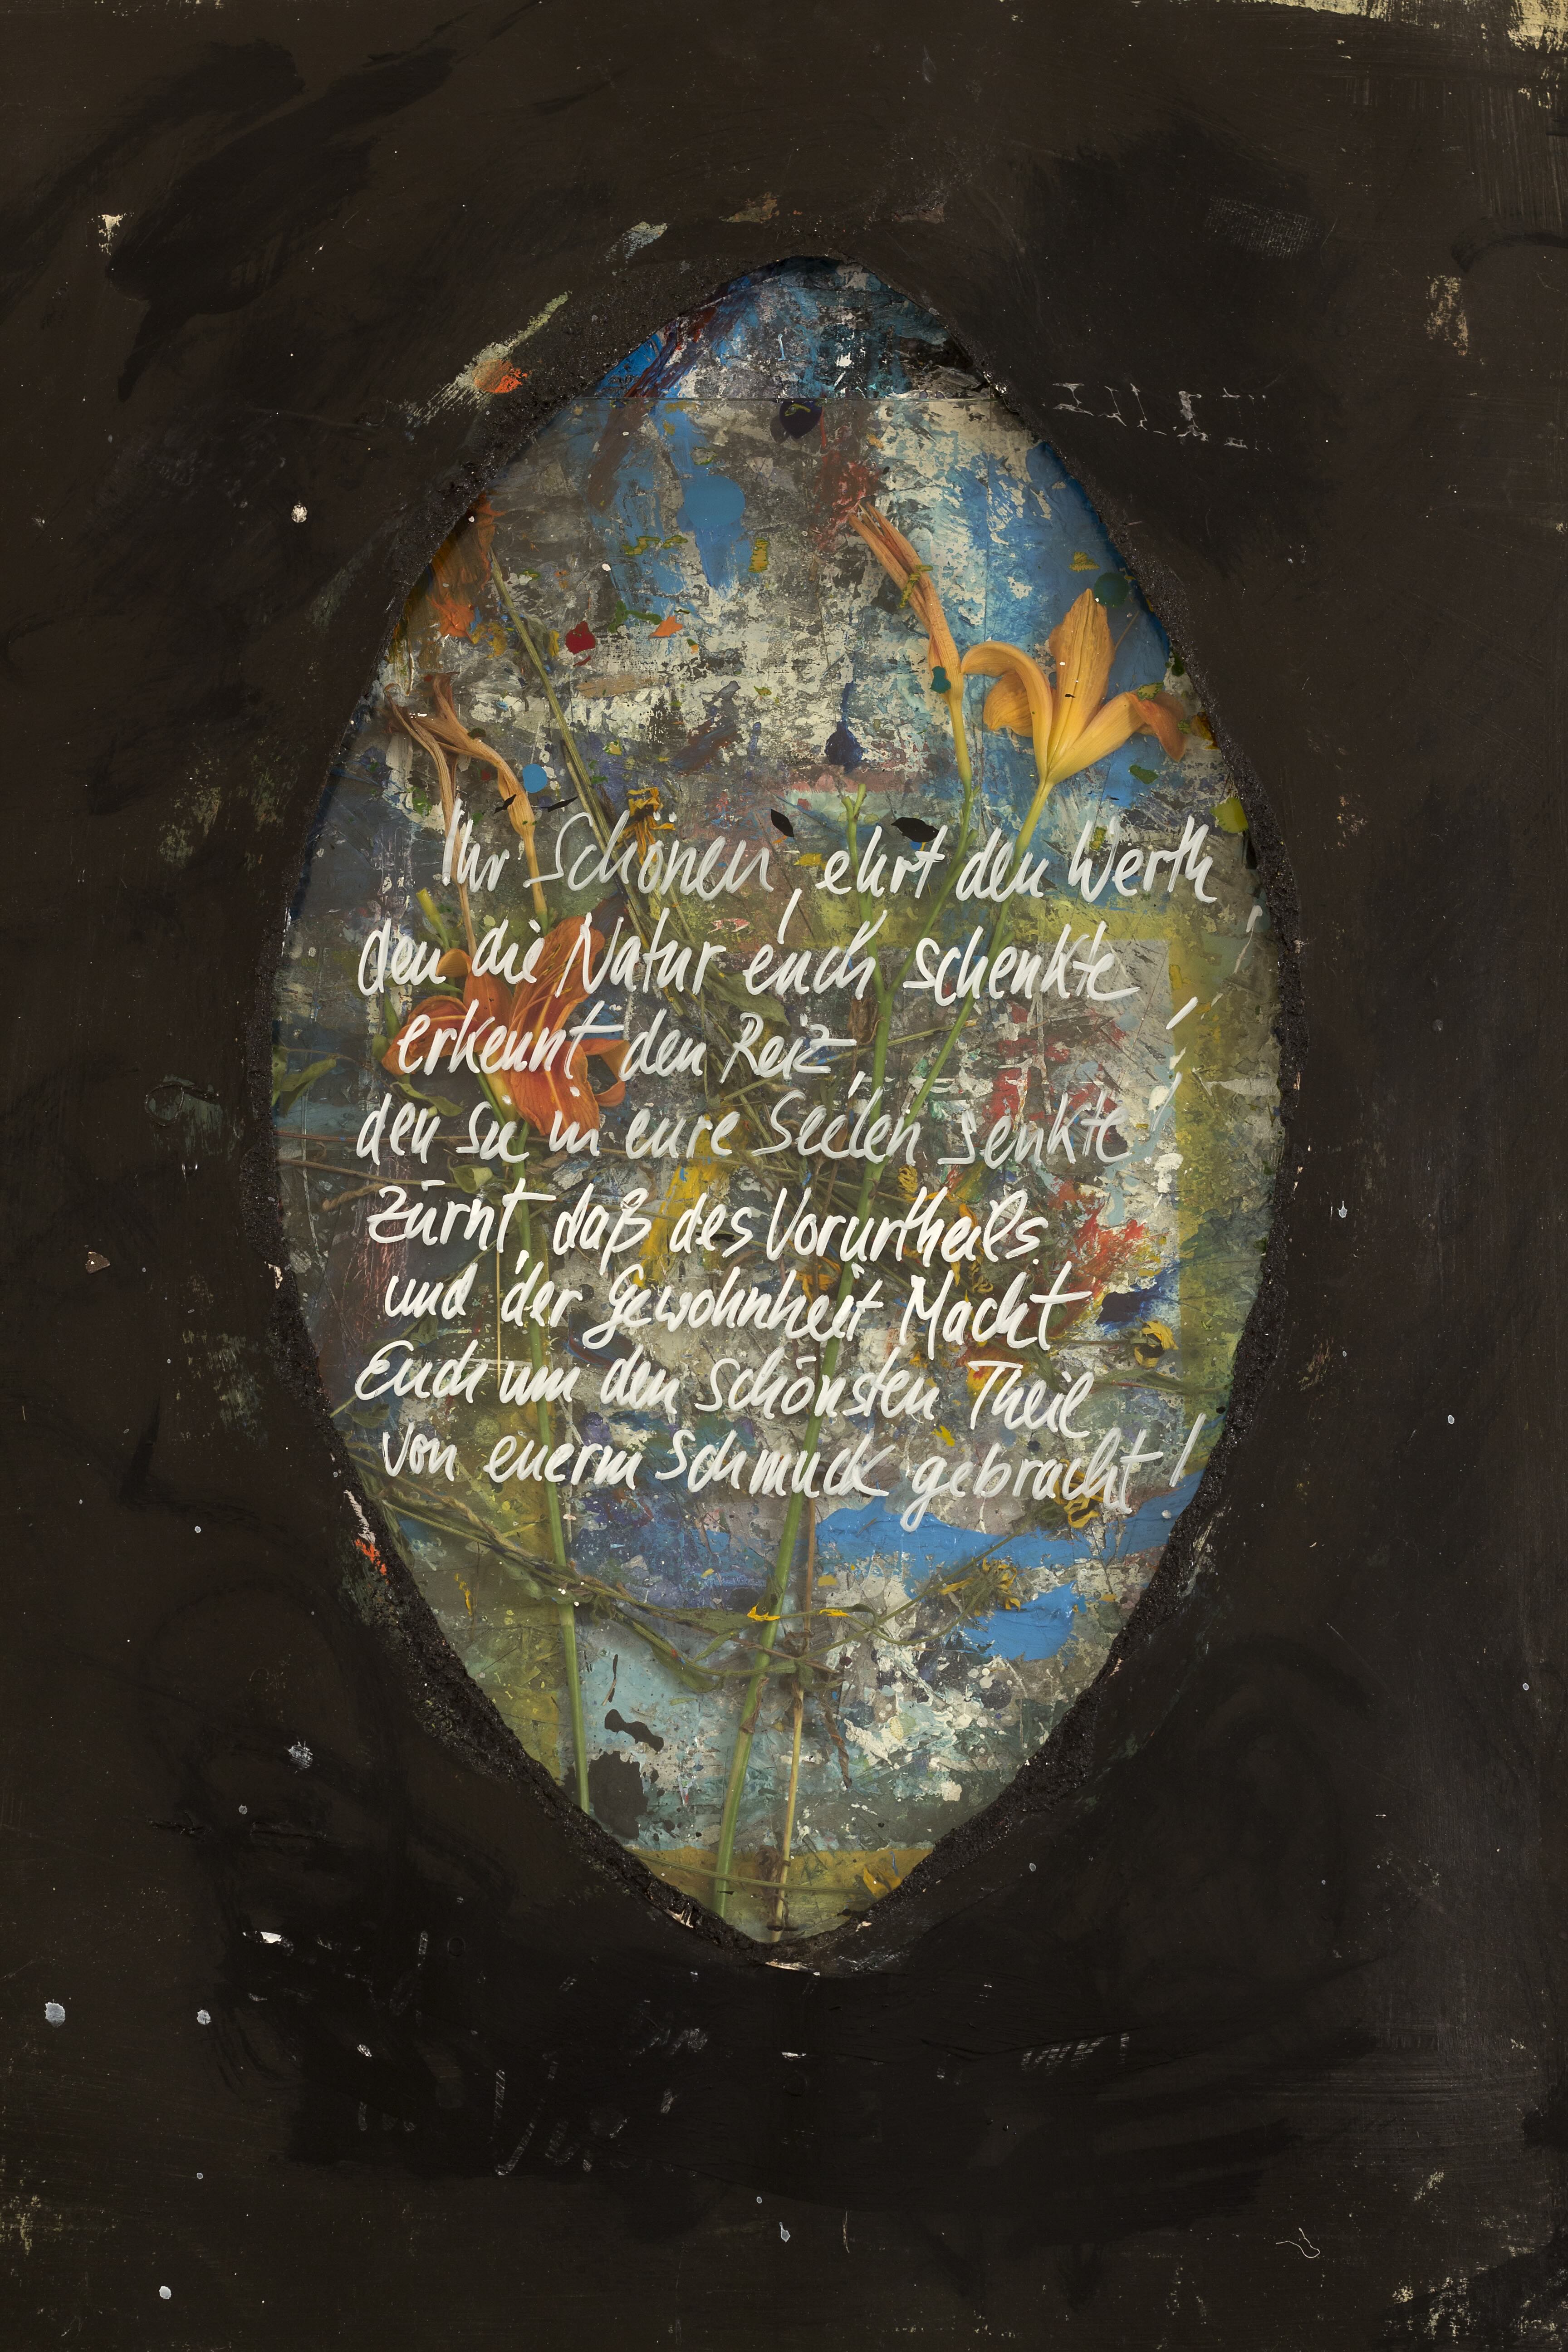 Ihr Schönen, ehrt den Werth
den die Natur euch schenkte
erkennt den Reiz,
den sie in eure Seelen senkte!
Zürnt, daß des Vorurtheils
und der Gewohnheit Macht
Euch um den schönsten Theil
von euerm Schmuck gebracht!